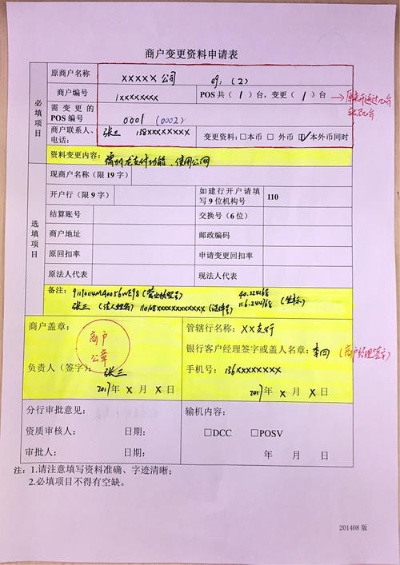 商户变更资料申请表
必填项目
原商户名称 XXXXX公司
商户编号 1xxxxxxxx POS共( 1 )台,变更( 1 )台
需变更的POS编号 0001 (0002)
商户联系人、电话: 张三 138xxxxxxxx 变更资料:□本币 □外币 ☑本外币同时
资料变更内容:
选填项目
现商户名称(限19字)
开户行(限9字) 如建行开户请填写9位机构号 110
结算账号 交换号(6位)
商户地址 邮政编码
原回扣率 申请变更回扣率
原法人代表 现法人代表
备注:
张三
商户盖章: 管辖行名称:XX支行
商户公章
银行客户经理签字或盖人名章:李四 (客户经理签字)
负责人(签字):张三 手机号:136xxxxxxxx
2017年 X 月 X 日 2017年 X 月 X 日
分行审批意见: 输机内容:
资质审核人: 日期: □DCC □POSV
审批人: 日期: 年 月 日
注:1.请注意填写资料准确、字迹清晰;
2.必填项目不得有空缺。
201408 版